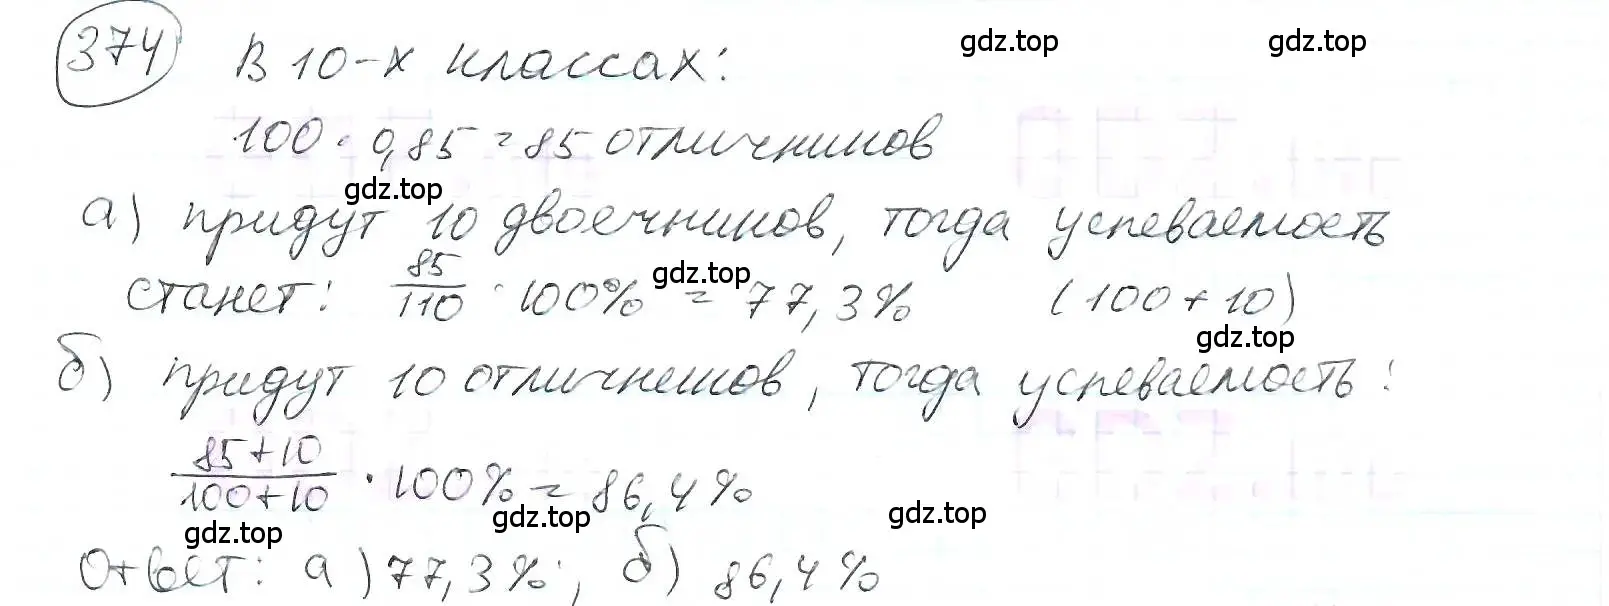 374 В 10-х классах: gdz.top gdz.top
100 · 0,85 = 85 отличников
gdz.top
а) придут 10 двоечников, тогда успеваемость
станет: 85/110 · 100% = 77,3% (100+10)
gdz.top
gdz.top
б) придут 10 отличников, тогда успеваемость:
85+10/100+10 · 100% = 86,4%
gdz.top gdz.top gdz.top
Ответ: а) 77,3%; б) 86,4%